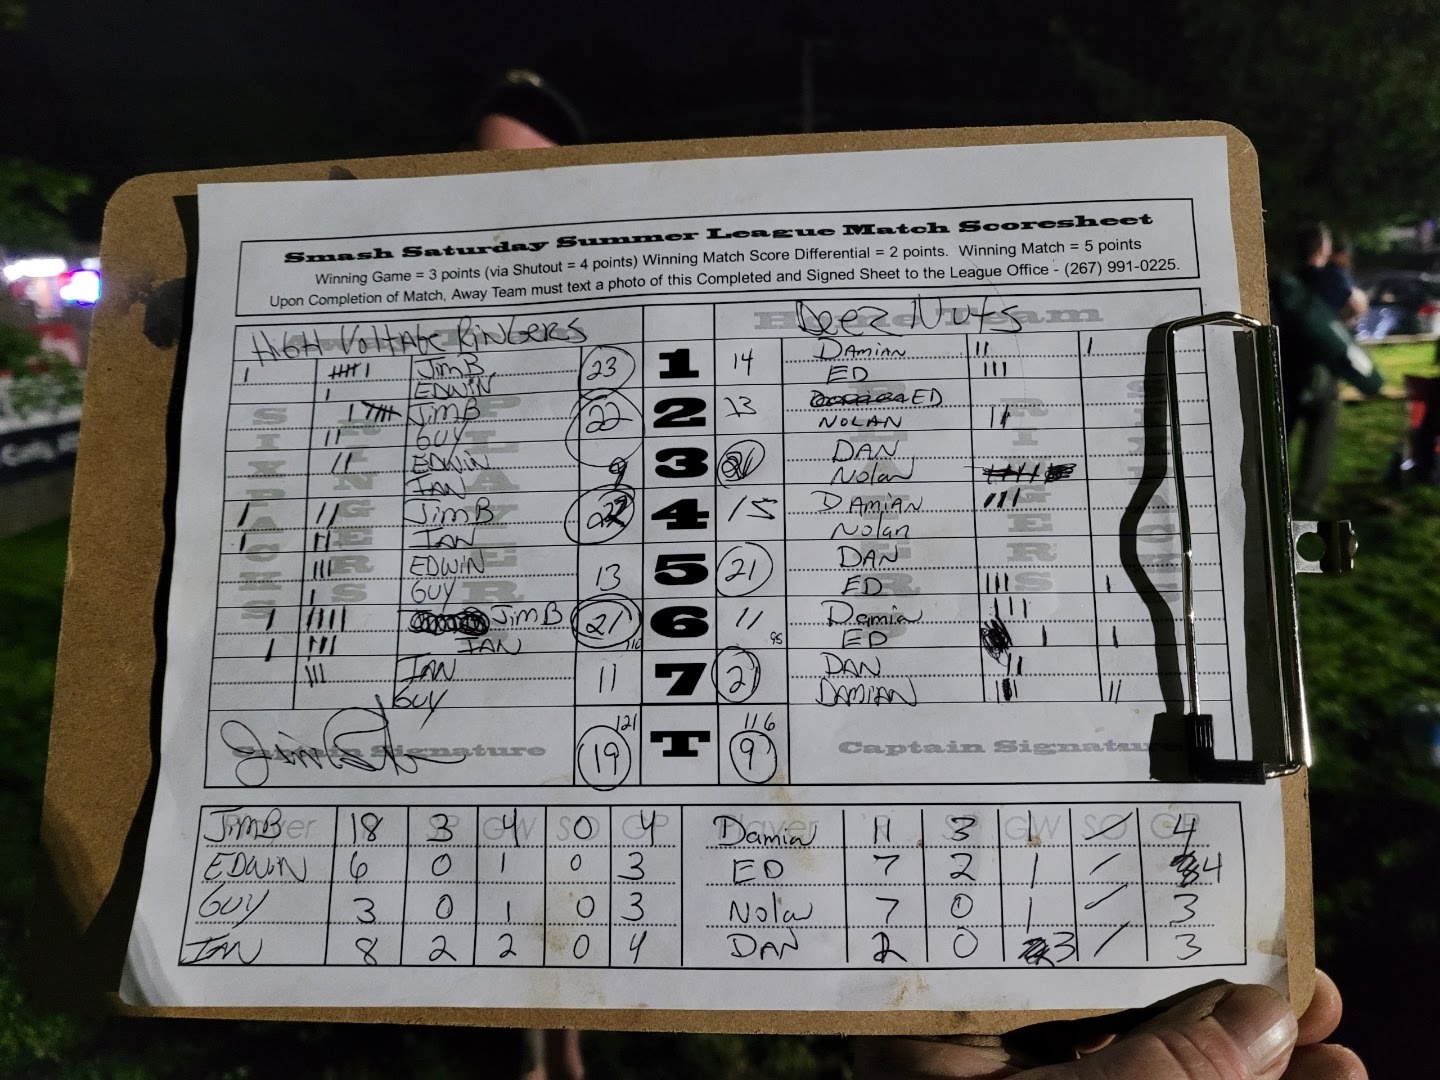 Smash Saturday Summer League Match Scoresheet
Winning Game = 3 points (via Shutout = 4 points) Winning Match Score Differential = 2 points. Winning Match = 5 points
Upon Completion of Match, Away Team must text a photo of this Completed and Signed Sheet to the League Office - (267) 991-0225.
HIGH VOLTAGE RINGERS Deez Nuts
Home Team
JimB 23 1 14 DAMIAN
EDWIN ED
JimB 22 2 13 ED
GUY NOLAN
EDWIN 9 3 DAN
IAN Nolan
JimB 22 4 15 DAMIAN
IAN Nolan
EDWIN 13 5 21 DAN
GUY ED
JimB 21 6 11 Damian
IAN 110 95 ED
IAN 11 7 21 DAN
GUY DAMIAN
SIXPACKS RINGERS PLAYERS PLAYERS RINGERS SIXPACKS
121 116
Captain Signature 19 T 9 Captain Signature
Player R SP GW SO GP Player R SP GW SO GP
JimB 18 3 4 0 4 Damian 11 3 1 / 4
EDWIN 6 0 1 0 3 ED 7 2 1 / 4
GUY 3 0 1 0 3 Nolan 7 0 1 / 3
IAN 8 2 2 0 4 DAN 0 3 / 3